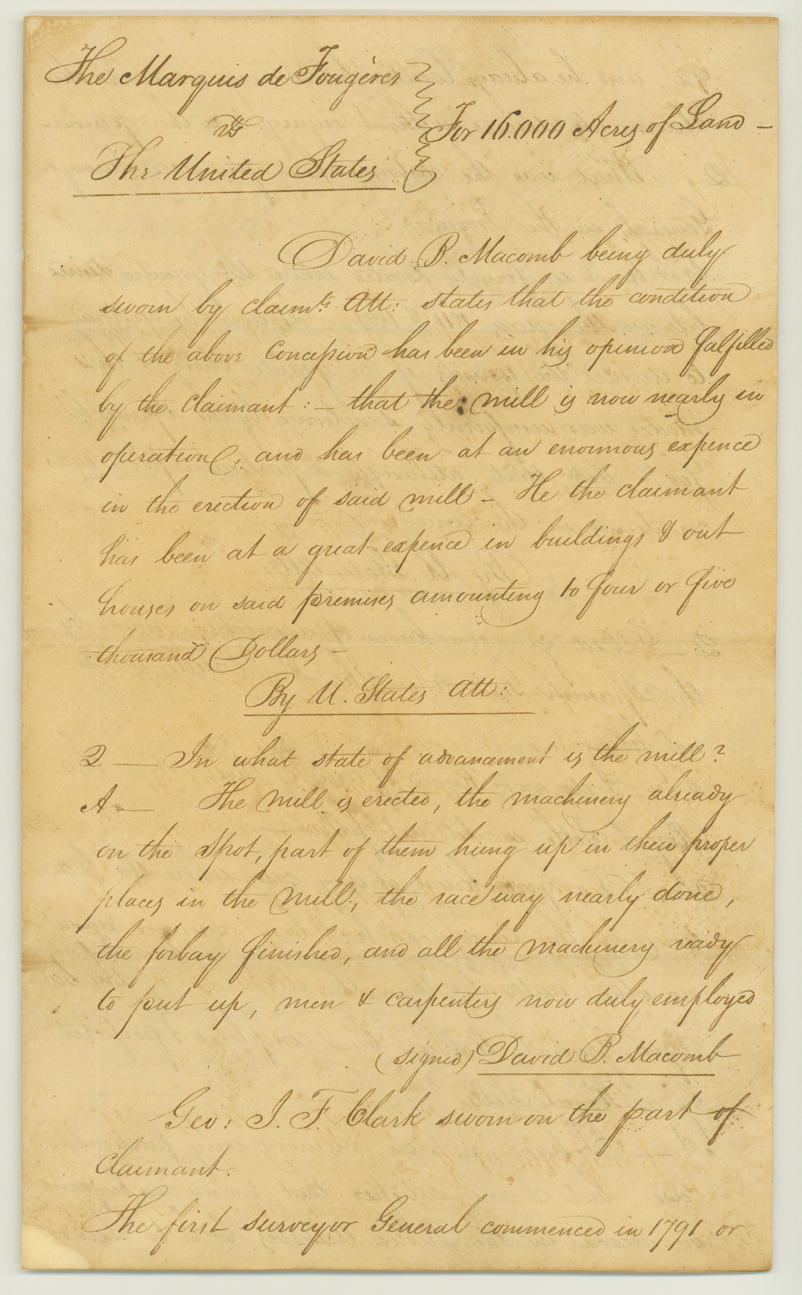 The Marquis de Fougères
vs
For 16.000 Acres of Land –
The United States
David B. Macomb being duly
sworn by claimts Att: states that the condition
of the above Concession has been in his opinion fulfilled
by the claimant : – that the mill is now nearly in
operation, and has been at an enormous expence
in the erection of said mill – He the claimant
has been at a great expence in buildings & out
houses on said premises amounting to four or five
thousand Dollars –
By U. States Att:
Q — In what state of advancement is the mill?
A — The mill is erected, the machinery already
on the spot, part of them hung up in their proper
places in the mill, the race way nearly done,
the forbay finished, and all the machinery ready
to put up, men & carpenters now duly employed
(signed) David B. Macomb
Geo: I. F. Clark sworn on the part of
claimant.
The first surveyor General commenced in 1791 or